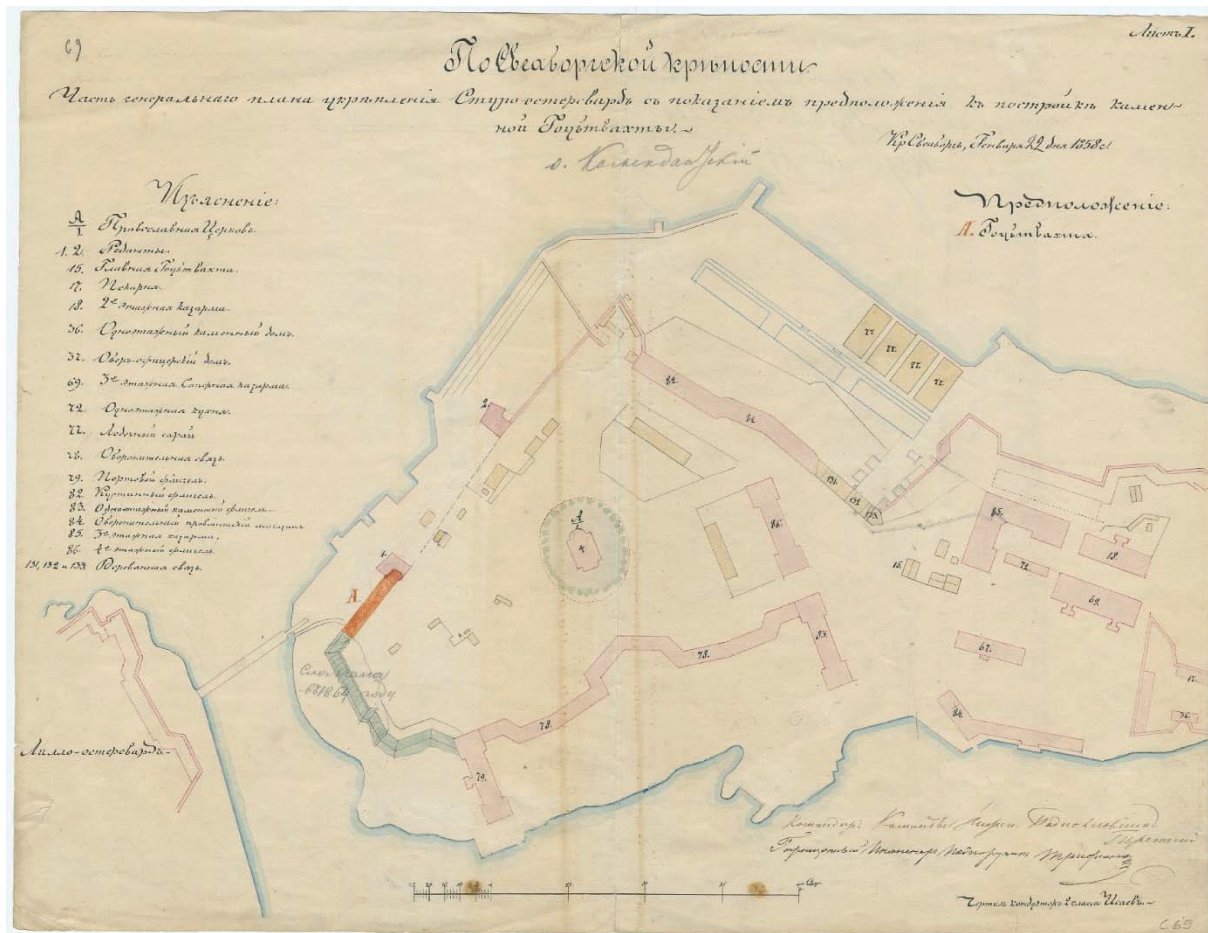 69
Листъ I.
По Свеаборгской крѣпости
Часть генеральнаго плана укрѣпленія Стуро-остерсвардъ съ показаніемъ предположенія къ постройкѣ камен-
ной Гоубтвахты.
Кр. Свеаборгъ, Генваря 22 дня 1858 г.
о.
Изъясненіе:
А/1 Православная Церковь.
1. 2. Редюиты.
15. Главная Гоубтвахта.
17. Пекарня.
18. 2хъ этажная казарма.
36. Одноэтажный каменный домъ.
37. Оберъ-офицерскій домъ.
69. 3хъ этажная Саперная казарма.
72. Одноэтажная кухня.
77. Лодочный сарай
78. Оборонительная связь
79. Портовой флигель.
82. Куртинный флигель.
83. Одноэтажный каменный флигель
84. Оборонительный провіантскій магазинъ
85. 3хъ этажная казарма.
86. 4хъ этажной флигель
131, 132 и 133. Деревянная связь.
Предположеніе:
А. Гоубтвахта.
77.
77.
77.
77.
82.
82.
131.
132.
133.
2.
А/1
86.
85.
18.
15.
72.
69.
1.
А
67.
83.
78.
78.
84.
17.
36.
79.
Сломана
въ 1864 году
Лилло-остерсвардъ
Командиръ Команды
Гарнизонный Инженеръ Подпоручикъ
Чертилъ кондукторъ 2 класса Исаевъ
С 69